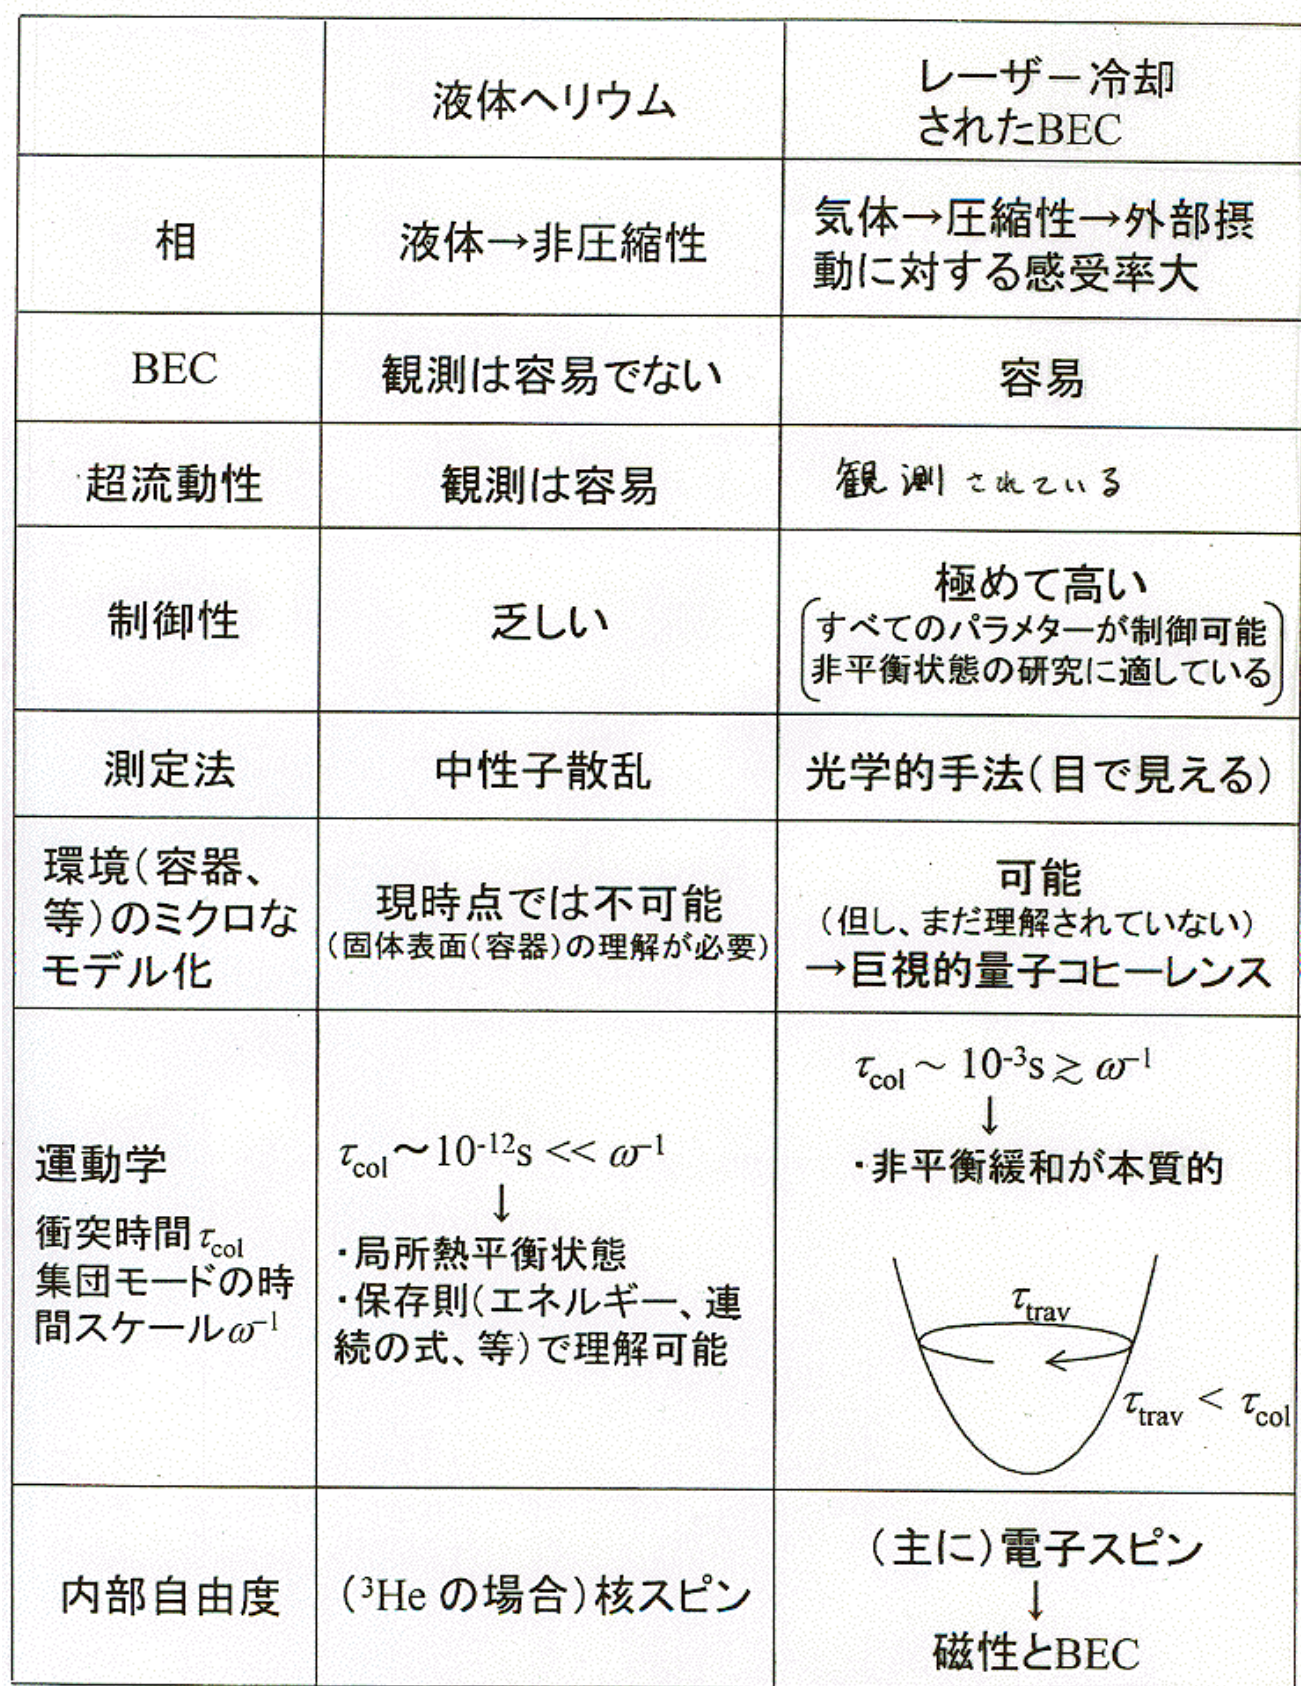 液体ヘリウム
レーザー冷却
されたBEC
相
液体→非圧縮性
気体→圧縮性→外部摂
動に対する感受率大
BEC
観測は容易でない
容易
超流動性
観測は容易
観測されている
制御性
乏しい
極めて高い
(すべてのパラメターが制御可能
非平衡状態の研究に適している)
測定法
中性子散乱
光学的手法(目で見える)
環境(容器、
等)のミクロな
モデル化
現時点では不可能
(固体表面(容器)の理解が必要)
可能
(但し、まだ理解されていない)
→巨視的量子コヒーレンス
運動学
衝突時間τcol
集団モードの時
間スケールω⁻¹
τcol~10⁻¹²s << ω⁻¹
↓
・局所熱平衡状態
・保存則(エネルギー、連
続の式、等)で理解可能
τcol ~ 10⁻³s ≳ ω⁻¹
↓
・非平衡緩和が本質的
τtrav
τtrav < τcol
内部自由度
(³He の場合)核スピン
(主に)電子スピン
↓
磁性とBEC